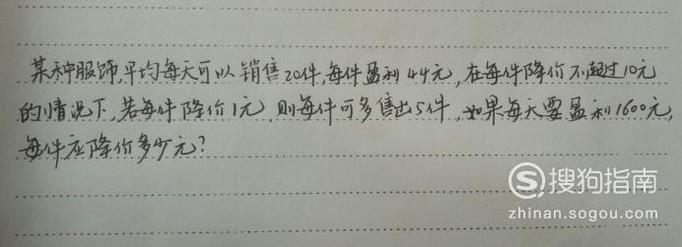 某种服饰,平均每天可以销售20件,每件盈利44元,在每件降价不超过10元
的情况下,若每件降价1元,则每件可多售出5件,如果每天要盈利1600元,
每件应降价多少元?
S 搜狗指南
zhinan.sogou.com